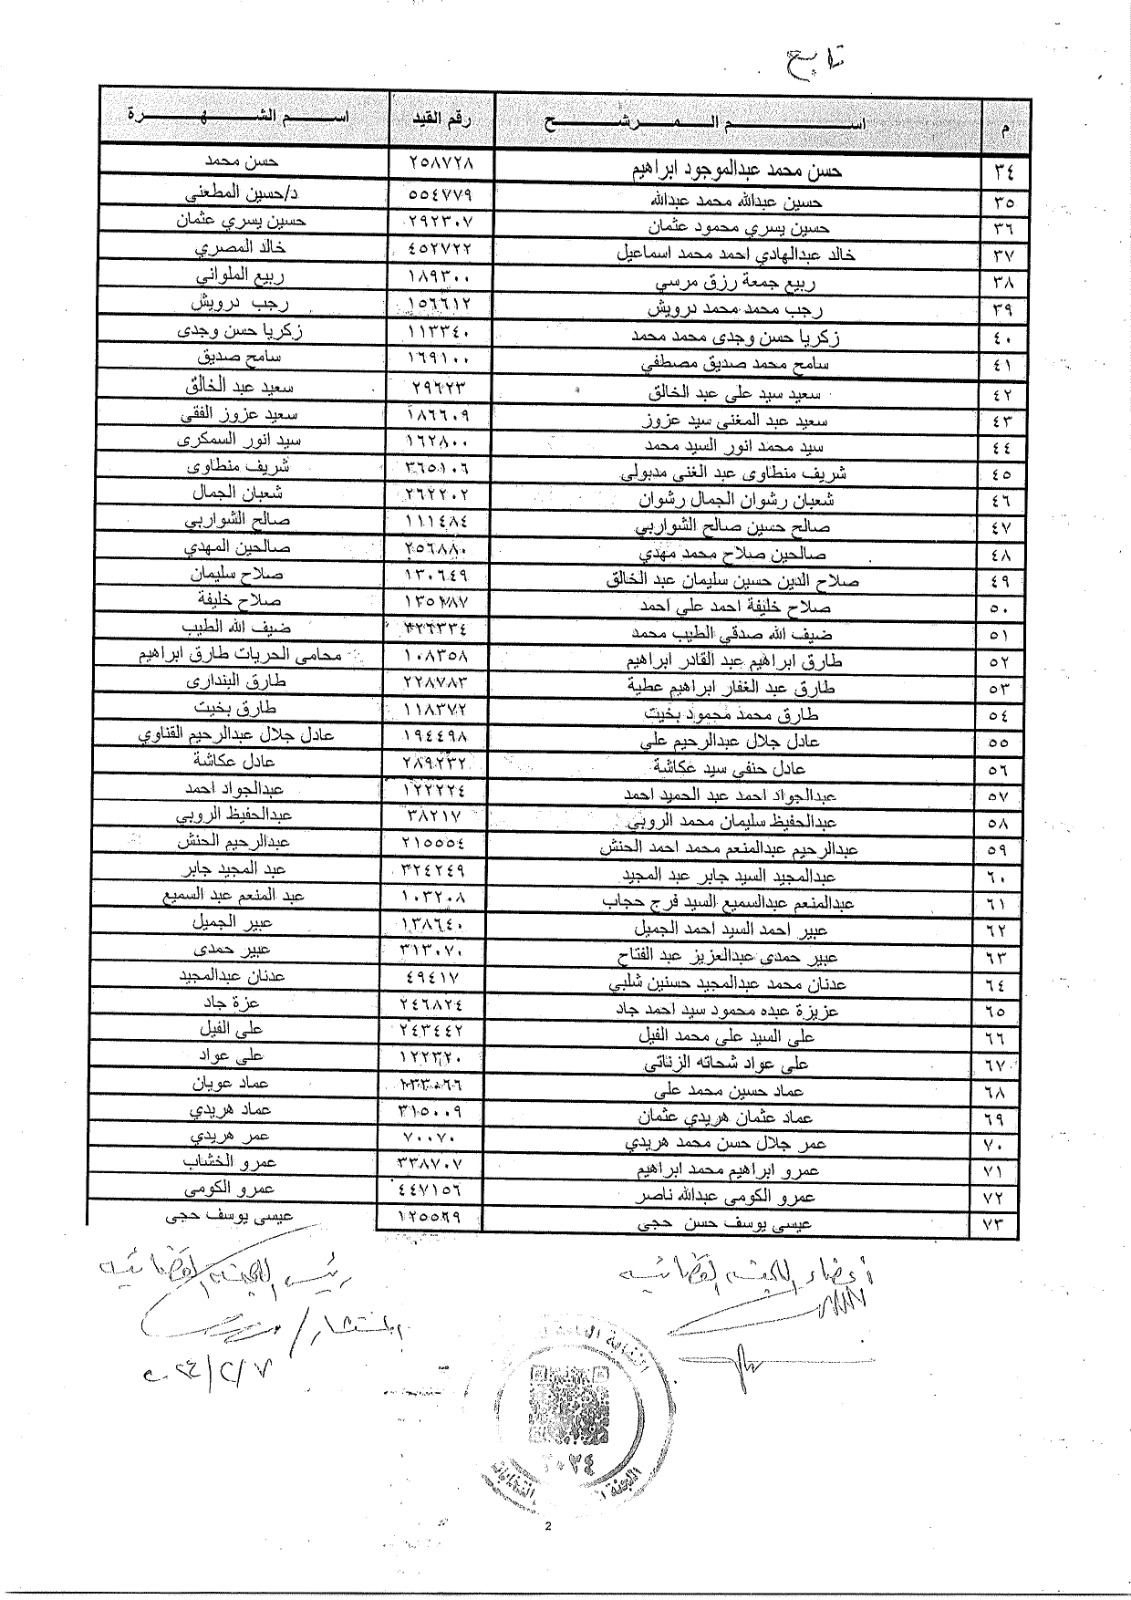 تابع
م اسم المرشح رقم القيد اسم الشهرة
٣٤ حسن محمد عبدالموجود ابراهيم ٢٥٨٧٢٨ حسن محمد
٣٥ حسين عبدالله محمد عبدالله ٥٥٤٧٧٩ د/حسين المطعني
٣٦ حسين يسري محمود عثمان ٢٩٢٣٠٧ حسين يسري عثمان
٣٧ خالد عبدالهادي احمد محمد اسماعيل ٤٥٢٧٢٢ خالد المصري
٣٨ ربيع جمعة رزق مرسي ١٨٩٣٠٠ ربيع الملواني
٣٩ رجب محمد محمد درويش ١٥٦٦١٢ رجب درويش
٤٠ زكريا حسن وجدى محمد محمد ١١٣٣٤٠ زكريا حسن وجدى
٤١ سامح محمد صديق مصطفي ١٦٩١٠٠ سامح صديق
٤٢ سعيد سيد علي عبد الخالق ٢٩٦٢٣ سعيد عبد الخالق
٤٣ سعيد عبد المغنى سيد عزوز ١٨٦٦٠٩ سعيد عزوز الفقى
٤٤ سيد محمد انور السيد محمد ١٦٢٨٠٠ سيد انور السمكرى
٤٥ شريف منطاوى عبد الغنى مدبولي ٣٦٥١٠٦ شريف منطاوى
٤٦ شعبان رشوان الجمال رشوان ٢٦٢٢٠٢ شعبان الجمال
٤٧ صالح حسين صالح الشواربي ١١١٤٨٤ صالح الشواربي
٤٨ صالحين صلاح محمد مهدي ٢٥٦٨٨٠ صالحين المهدي
٤٩ صلاح الدين حسين سليمان عبد الخالق ١٣٠٦٤٩ صلاح سليمان
٥٠ صلاح خليفة احمد علي احمد صلاح خليفة
٥١ ضيف الله صدقي الطيب محمد ضيف الله الطيب
٥٢ طارق ابراهيم عبد القادر ابراهيم ١٠٨٣٥٨ محامى الحريات طارق ابراهيم
٥٣ طارق عبد الغفار ابراهيم عطية ٢٢٨٧٨٣ طارق البندارى
٥٤ طارق محمد محمود بخيت ١١٨٣٧٢ طارق بخيت
٥٥ عادل جلال عبدالرحيم علي ١٩٤٤٩٨ عادل جلال عبدالرحيم القناوي
٥٦ عادل حنفى سيد عكاشة ٢٨٩٢٣٢ عادل عكاشة
٥٧ عبدالجواد احمد عبد الحميد احمد ١٢٢٢٢٤ عبدالجواد احمد
٥٨ عبدالحفيظ سليمان محمد الروبي ٣٨٢١٧ عبدالحفيظ الروبي
٥٩ عبدالرحيم عبدالمنعم محمد احمد الحنش ٢١٥٥٥٤ عبدالرحيم الحنش
٦٠ عبدالمجيد السيد جابر عبد المجيد ٣٢٤٢٤٩ عبد المجيد جابر
٦١ عبدالمنعم عبدالسميع السيد فرج حجاب ١٠٣٢٠٨ عبد المنعم عبد السميع
٦٢ عبير احمد السيد احمد الجميل ١٣٨٦٤٠ عبير الجميل
٦٣ عبير حمدى عبدالعزيز عبد الفتاح ٣١٣٠٧٠ عبير حمدى
٦٤ عدنان محمد عبدالمجيد حسنين شلبي ٤٩٤١٧ عدنان عبدالمجيد
٦٥ عزيزة عبده محمود سيد احمد جاد ٢٤٦٨٢٤ عزة جاد
٦٦ على السيد على محمد الفيل ٢٤٣٤٤٢ على الفيل
٦٧ على عواد شحاته الزناتى ١٢٢٣٢٠ على عواد
٦٨ عماد حسين محمد على عماد عوبان
٦٩ عماد عثمان هريدي عثمان ٣١٥٠٠٩ عماد هريدي
٧٠ عمر جلال حسن محمد هريدي ٧٠٠٧٠ عمر هريدي
٧١ عمرو ابراهيم محمد ابراهيم ٣٣٨٧٠٧ عمرو الخشاب
٧٢ عمرو الكومى عبدالله ناصر ٤٤٧١٥٦ عمرو الكومى
٧٣ عيسى يوسف حسن حجى ١٢٥٥٦٩ عيسى يوسف حجى
أعضاء اللجنة القضائية رئيس اللجنة القضائية
المستشار/
٢٠٢٤/٢/٧
النقابة
٢٠٢٤
اللجنة
2